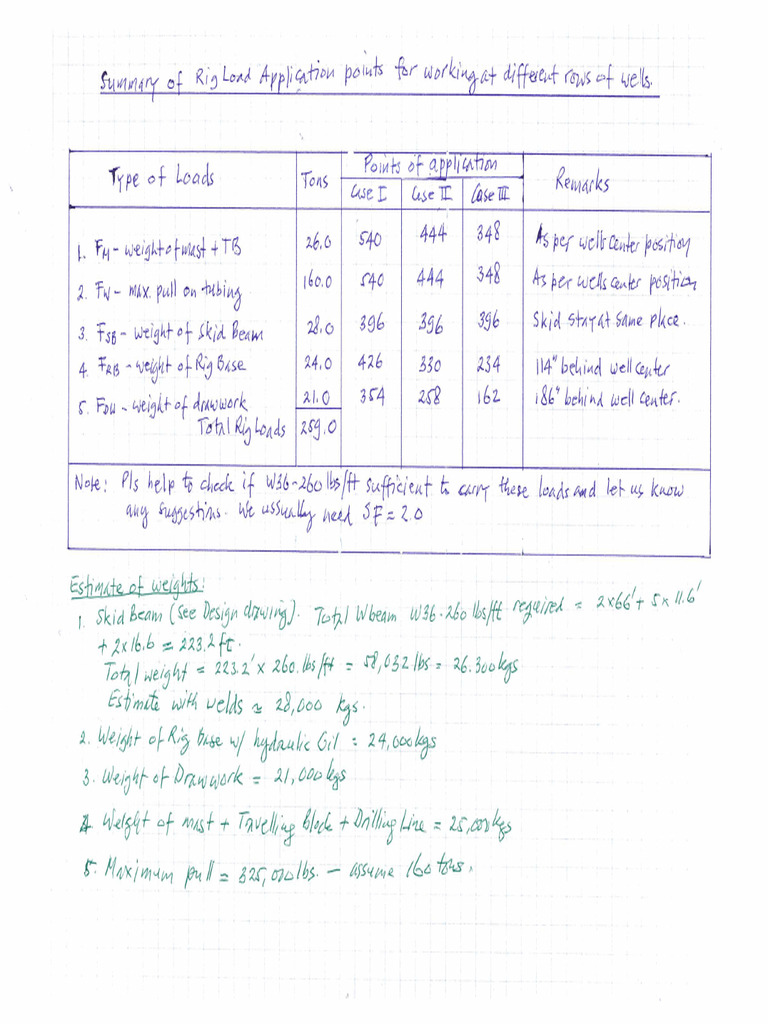 Summary of Rig Load Application points for working at different rows of wells.
Type of Loads Tons Points of application Remarks
Case I Case II Case III
1. FM - weight of mast + TB 26.0 540 444 348 As per well center position
2. FW - max. pull on tubing 160.0 540 444 348 As per wells center position
3. FSB - weight of Skid Beam 28.0 396 396 396 Skid stay at same place.
4. FRB - weight of Rig Base 24.0 426 330 234 114" behind well center
5. FDW - weight of drawwork 21.0 354 258 162 186" behind well center.
Total Rig Loads 259.0
Note: Pls help to check if W36-260 lbs/ft sufficient to carry these loads and let us know
any suggestions. We ussually need SF = 2.0
Estimate of weights:
1. Skid Beam (see Design drawing). Total W beam W36-260 lbs/ft required = 2x66' + 5x11.6'
+ 2x16.6 = 223.2 ft.
Total weight = 223.2' x 260.lbs/ft = 58,032 lbs = 26.300kgs
Estimate with welds ≈ 28,000 kgs.
2. Weight of Rig Base w/ hydraulic Oil = 24,000kgs
3. Weight of Drawwork = 21,000kgs
4. Weight of mast + Travelling Block + Drilling Line = 25,000kgs
5. Maximum pull = 325,000lbs. - assume 160 tons.